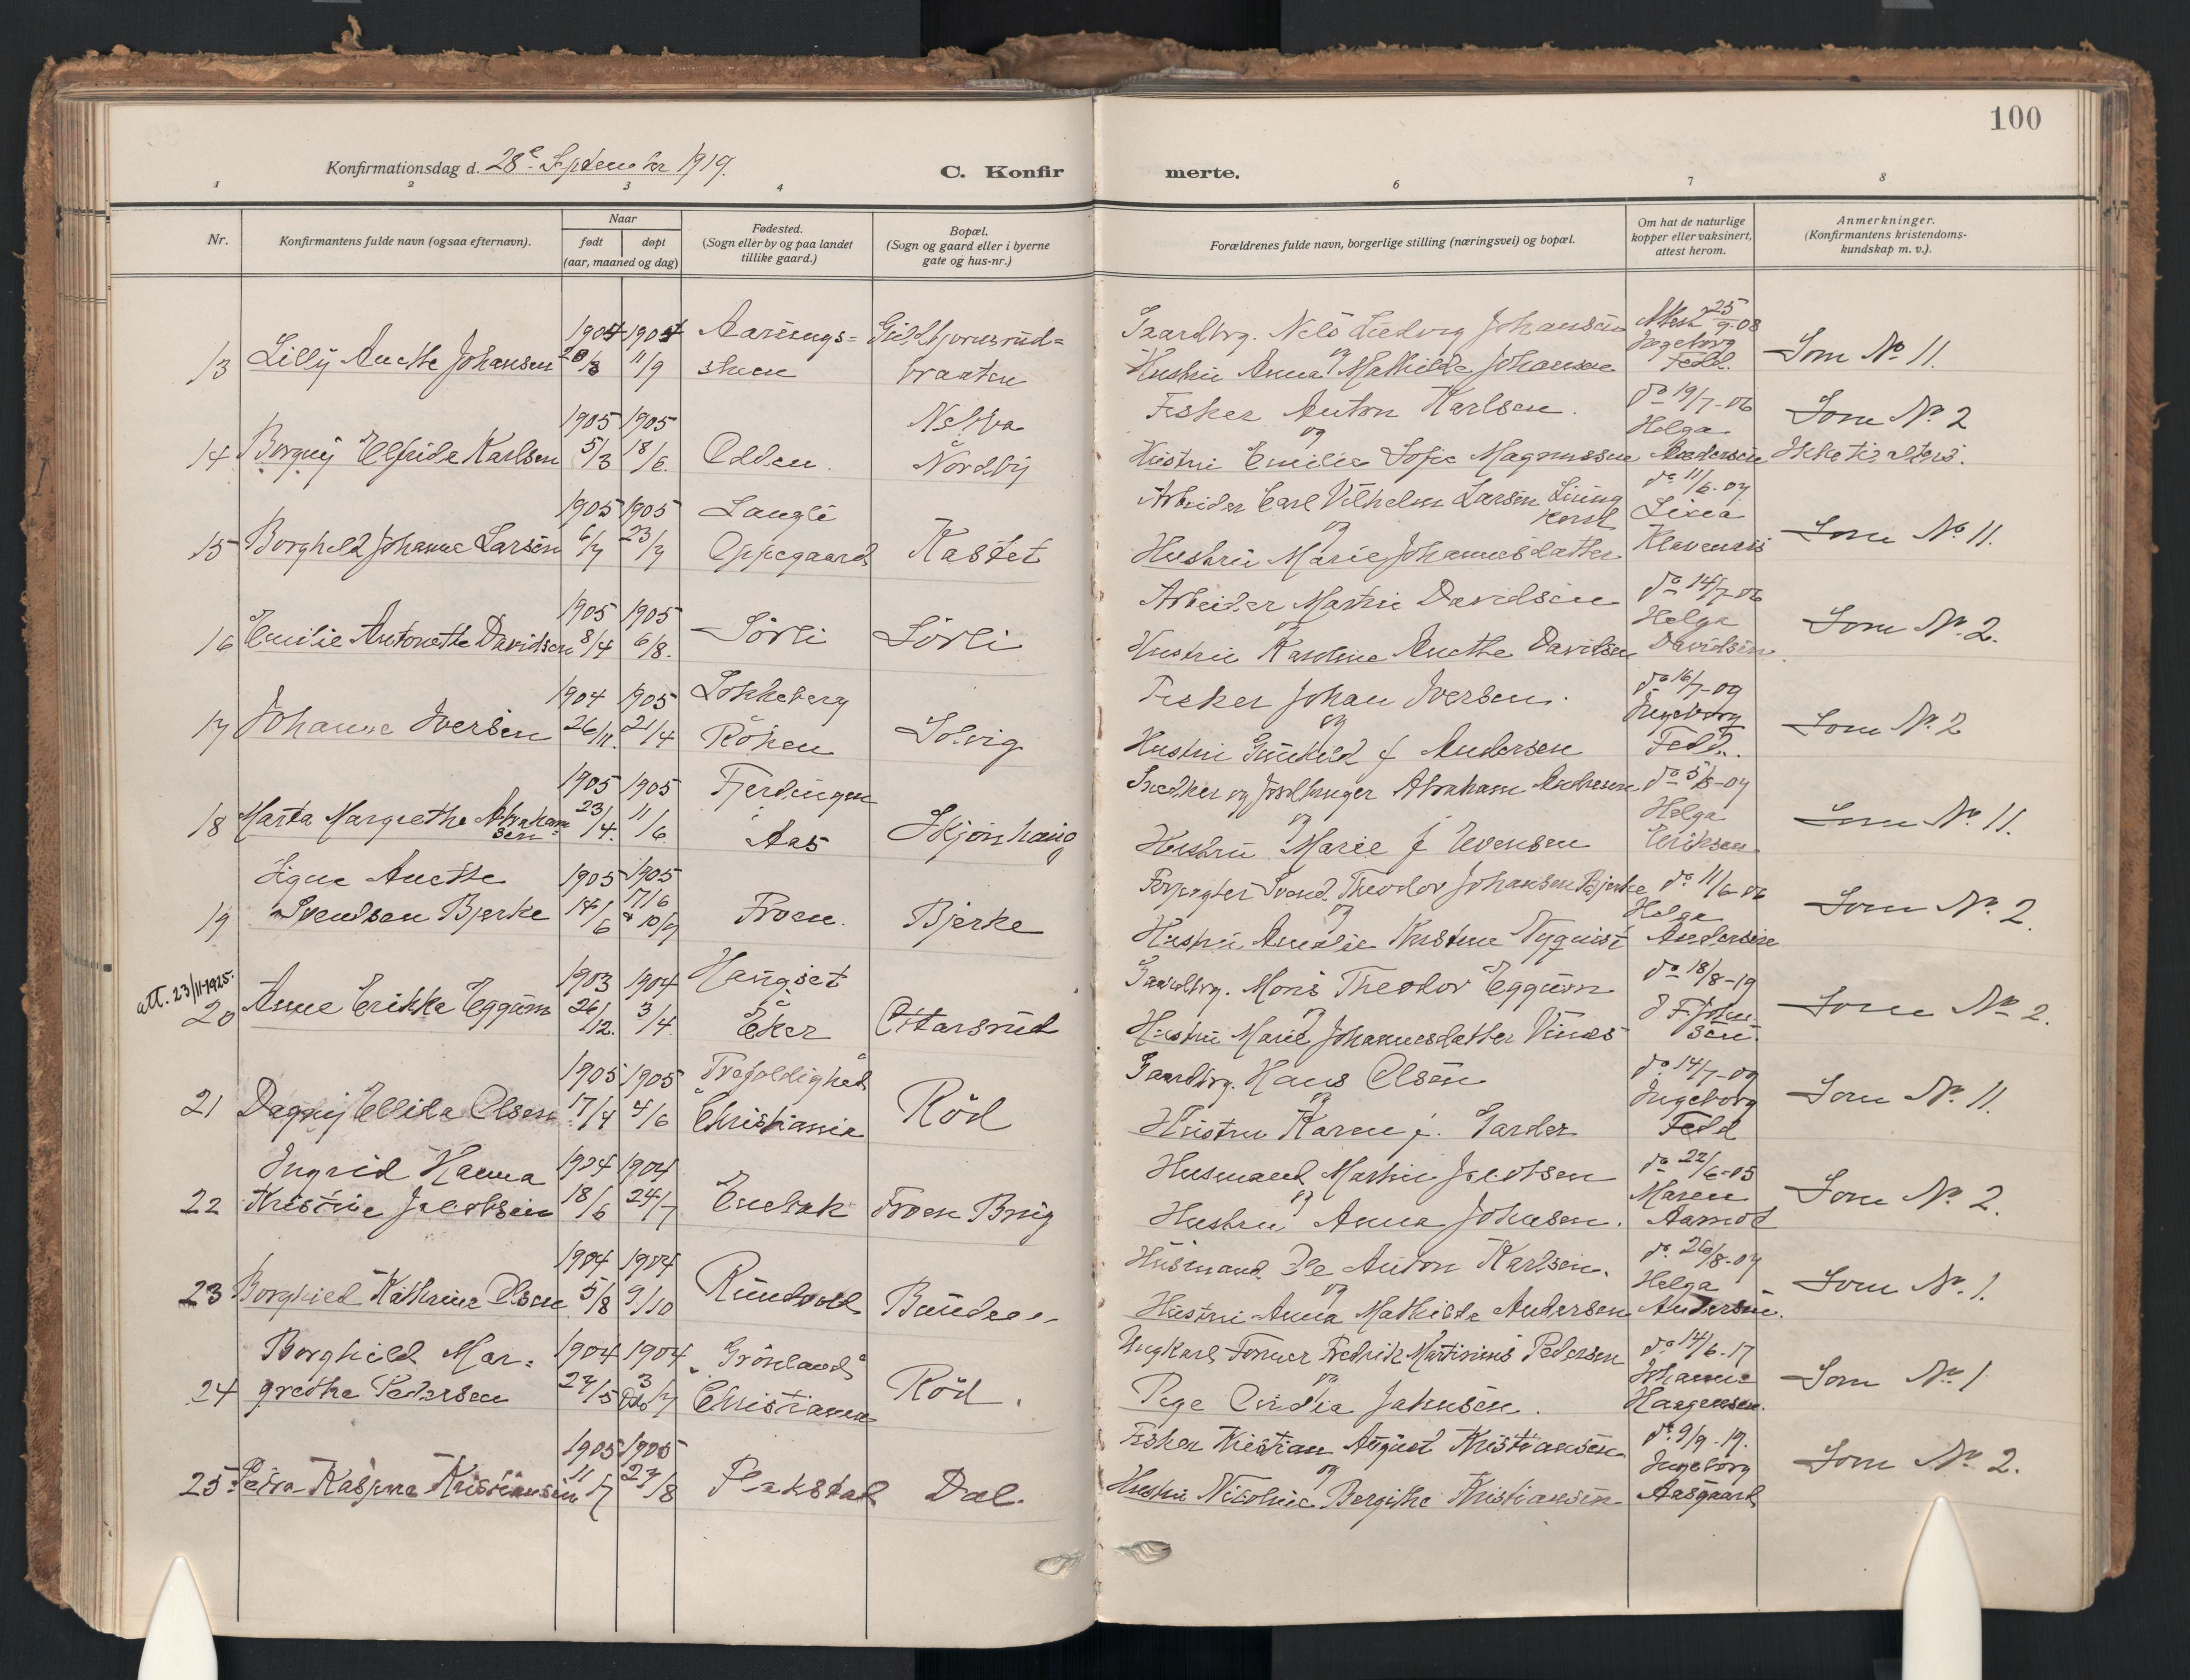 100
Konfirmationsdag d. 28e September 1919.
C. Konfir
merte.
1 2 3 4 6 7 8
Nr.
Konfirmantens fulde navn (ogsaa efternavn).
Naar
født døpt
(aar, maaned og dag)
Fødested.
(Sogn eller by og paa landet
tillike gaard.)
Bopæl.
(Sogn og gaard eller i byerne
gate og hus-nr.)
Forældrenes fulde navn, borgerlige stilling (næringsvei) og bopæl.
Om hat de naturlige
kopper eller vaksinert,
attest herom.
Anmerkninger.
(Konfirmantens kristendoms-
kundskap m. v.).
1904 1904 Aarungs= Guldbjørnsrud= Gaardbrg. Nels Ludvig Johansen Attest 25/9-08
13 Lilly Anethe Johansen 20/8 11/9 braaten og Hustru Anna Mathilde Johansen Ingeborg Feld. Som No 11.
1905 1905 Nesva Fisker Anton Karlsen. do 19/7-06 Som No 2
14 Borgny Elfrida Karlsen 5/3 18/6. Odden. Nordby og Hustru Emilie Sofie Magnussen Helga Andersen
1905 1905 Langli Arbeider Carl Vilhelm Larsen do 11/6-07
15 Borghild Johanne Larsen 6/7 23/7 Oppegaard Kastet og Hustru Marie Johannesdatter Som No 11.
1905 1905 Arbeider Martin Davidsen do 14/7-06
16 Emilie Antonette Davidsen 8/4 6/8. Sørli Sørli og Hustru Karoline Anethe Davidsen Helga Davidsen. Som No 2.
1904 1905 Lokkeberg Fisker Johan Iversen. do 16/7-09
17 Johanne Iversen 26/11. 21/4 Røken Solvig og Hustru Gunhild f Andersen Ingeborg Feld. Som No 2
1905 1905 Fjerdingen Snedker og Abraham Andresen do 5/8-07
18 Marta Margrethe Abraham=
sen 23/4. 11/6. Aas Skjønhaug og Hustru Marie f Evensen Helga Eriksen Som No 11.
Signe Anethe 1905 1905 Forpagter Svend Theodor Johansen Bjerke do 11/6-06
19 Svendsen Bjerke 14/6 17/6 & 10/9 Froen. Bjerke og Hustru Amalie Kristine Nyquist Helga Andersen Som No 2.
att. 23/11-1925.
1903 1904 Haugset Gaardbrg. Mons Theodor Eggum do 18/8-19
20 Anne Erikka Eggum 26/12. 3/4. Eker Ottarsrud og Hustru Marie Johannesdatter Vinæs J F. John-
sen. Som No 2.
1905 1905 Trefoldighed Gaardbrg. Hans Olsen do 14/7-09
21 Dagny Ellida Olsen 17/4 4/6 Christiania Rød og Hustru Karen f. Garder Ingeborg Feld Som No 11.
Ingrid Hanna 1904 1904 Husmand Martin Jacobsen do 22/6-05
22 Kristine Jacobsen 18/6 24/7 Enebak Froen Brug og Hustru Anna Johnsen. Maren Aamot Som No 2.
1904 1904 Husmand Ole Anton Karlsen. do 26/8-07
23 Borghild Kathrine Olsen 5/8 9/10 og Hustru Anna Mathilde Andersen Helga Andersen. Som No 1.
Borghild Mar= 1904 1904 "Grønland" Ungkarl Former Fredrik Martinius Pedersen do 14/6-17
24 grethe Pedersen 27/5 3/7 Christiania Rød. og Pige Johanne Haagensen. Som No 1
1905 1905 Fisker Kristian August Kristiansen do 9/9-19.
25 Petra Kaspara Kristiansen 11/7 27/8 Flakstad Dal. og Hustru Nicoline Bergithe Kristiansen Ingeborg Aasgaard Som No 2.